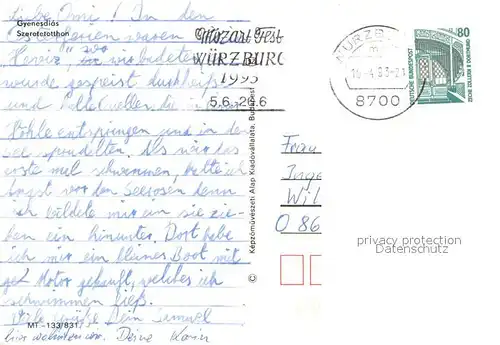 Liebe Omi! In den
Gyenesdiás
Szeretetotthon
Osterferien waren
Heviz", wo wir badeten
wurde gespeist durch heiße
und kalte Quellen die in einer
Höhle entspringen und in den
See sprudelten. Als wir das
erste mal schwammen, hatte ich
Angst vor den Seerosen denn
ich bildete mir ein sie zie-
hen ein hinunter. Dort habe
ich mir ein kleines Boot mit
Motor gekauft, welches ich
schwimmen ließ.
Viele Grüße Dein Samuel
MT-133/831
hier wohnten wir. Deine Karin
Képzőművészeti Alap Kiadóvállalata, Budapest
Mozart Fest
WÜRZBURG
1993
5.6. 26.6
WÜRZB
8700
80
DEUTSCHE BUNDESPOST
ZECHE ZOLLERN II DORTMUND
Frau
Inge
Wil
O 86
privacy protection
Datenschutz